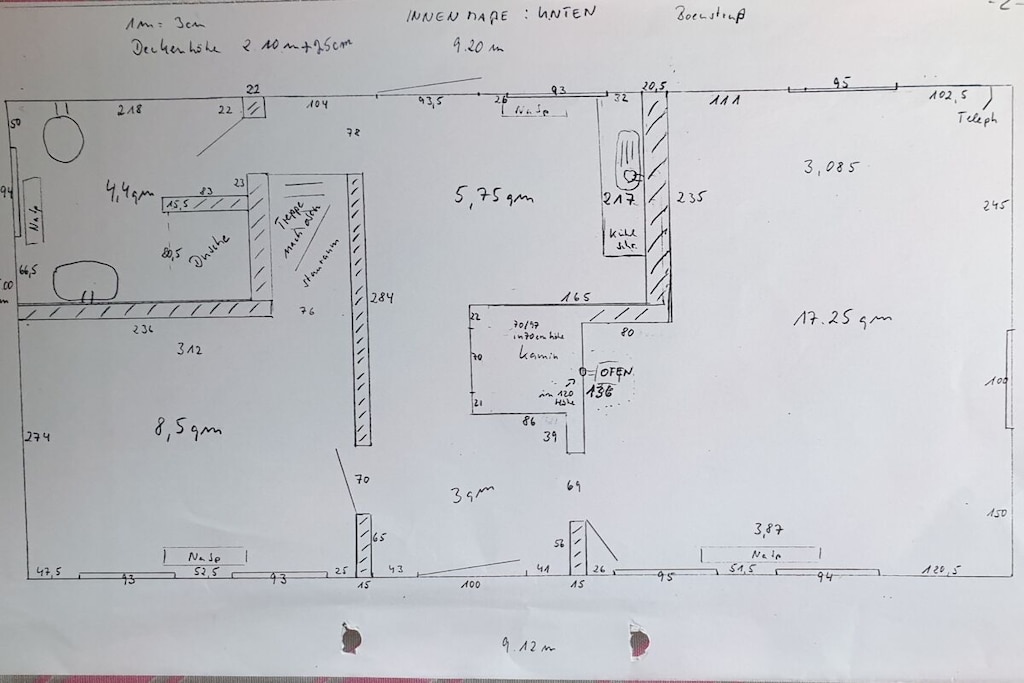 1m = 3cm
INNENMAßE : UNTEN
- 2 -
Deckenhöhe 2.10 m + 25cm
9.20 m
22
218
22
104
93,5
26
93
32
20,5
111
95
102,5
Teleph
50
78
Na Sp
3,085
94
Na Sp
4,4qm
83
23
15,5
80,5
Dusche
Treppe
nach oben
Stauraum
5,75 qm
217
Kühl
schr.
235
245
66,5
236
76
284
165
312
22
70
21
70/97
in 70cm höhe
Kamin
80
OFEN
136
in 120
Höhe
17.25 qm
100
8,5qm
274
86
39
70
3qm
69
150
65
56
3,87
Na Sp
Na Sp
47,5
93
52,5
93
25
15
43
100
41
15
26
95
51,5
94
120,5
9.12 m